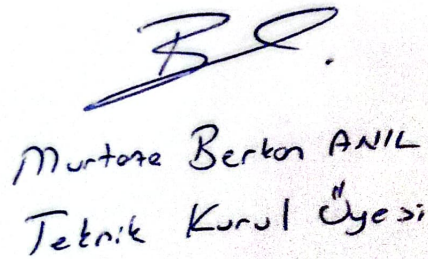 Murtaza Berkan ANIL
Teknik Kurul Üyesi